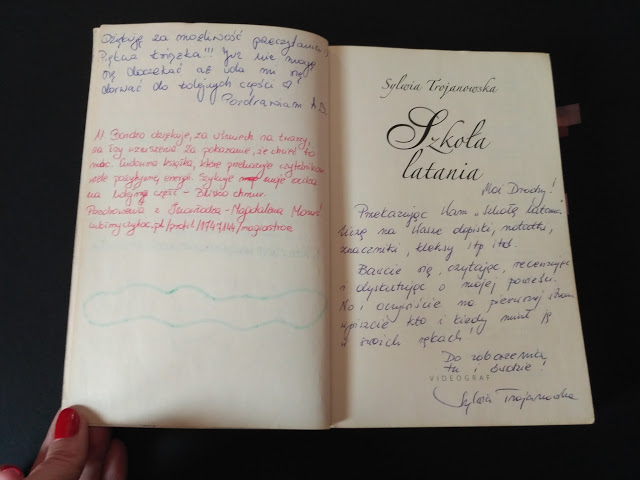 Dziękuję za możliwość przeczytania,
Piękna książka!!! Już nie mogę
się doczekać aż uda mi się
dorwać do kolejnych części ♡
Pozdrawiam
Bardzo dziękuję, za uśmiech na twarzy,
za łzy wzruszenia. Za pokazanie, że chcieć to
móc. Cudowna książka, która przekazuje czytelnikom
wiele pozytywnej energii. Szykuję moje
na kolejną część - Blisko chmur.
Pozdrowienia z - Magdalena
lubimyczytac.pl/profil/1747144/magiastroz
Sylwia Trojanowska
Szkoła
latania
Moi Drodzy!
Przekazując Wam „Szkołę latania"
liczę na Wasze dopiski, notatki,
znaczniki, kleksy itp. itd.
Bawcie się, czytając, recenzując
i dyskutując o mojej powieści.
No i oczywiście na pierwszej stronie
wpiszcie kto i kiedy miał ją
w swoich rękach!
Do zobaczenia,
tu i ówdzie!
VIDEOGRAF
Sylwia Trojanowska